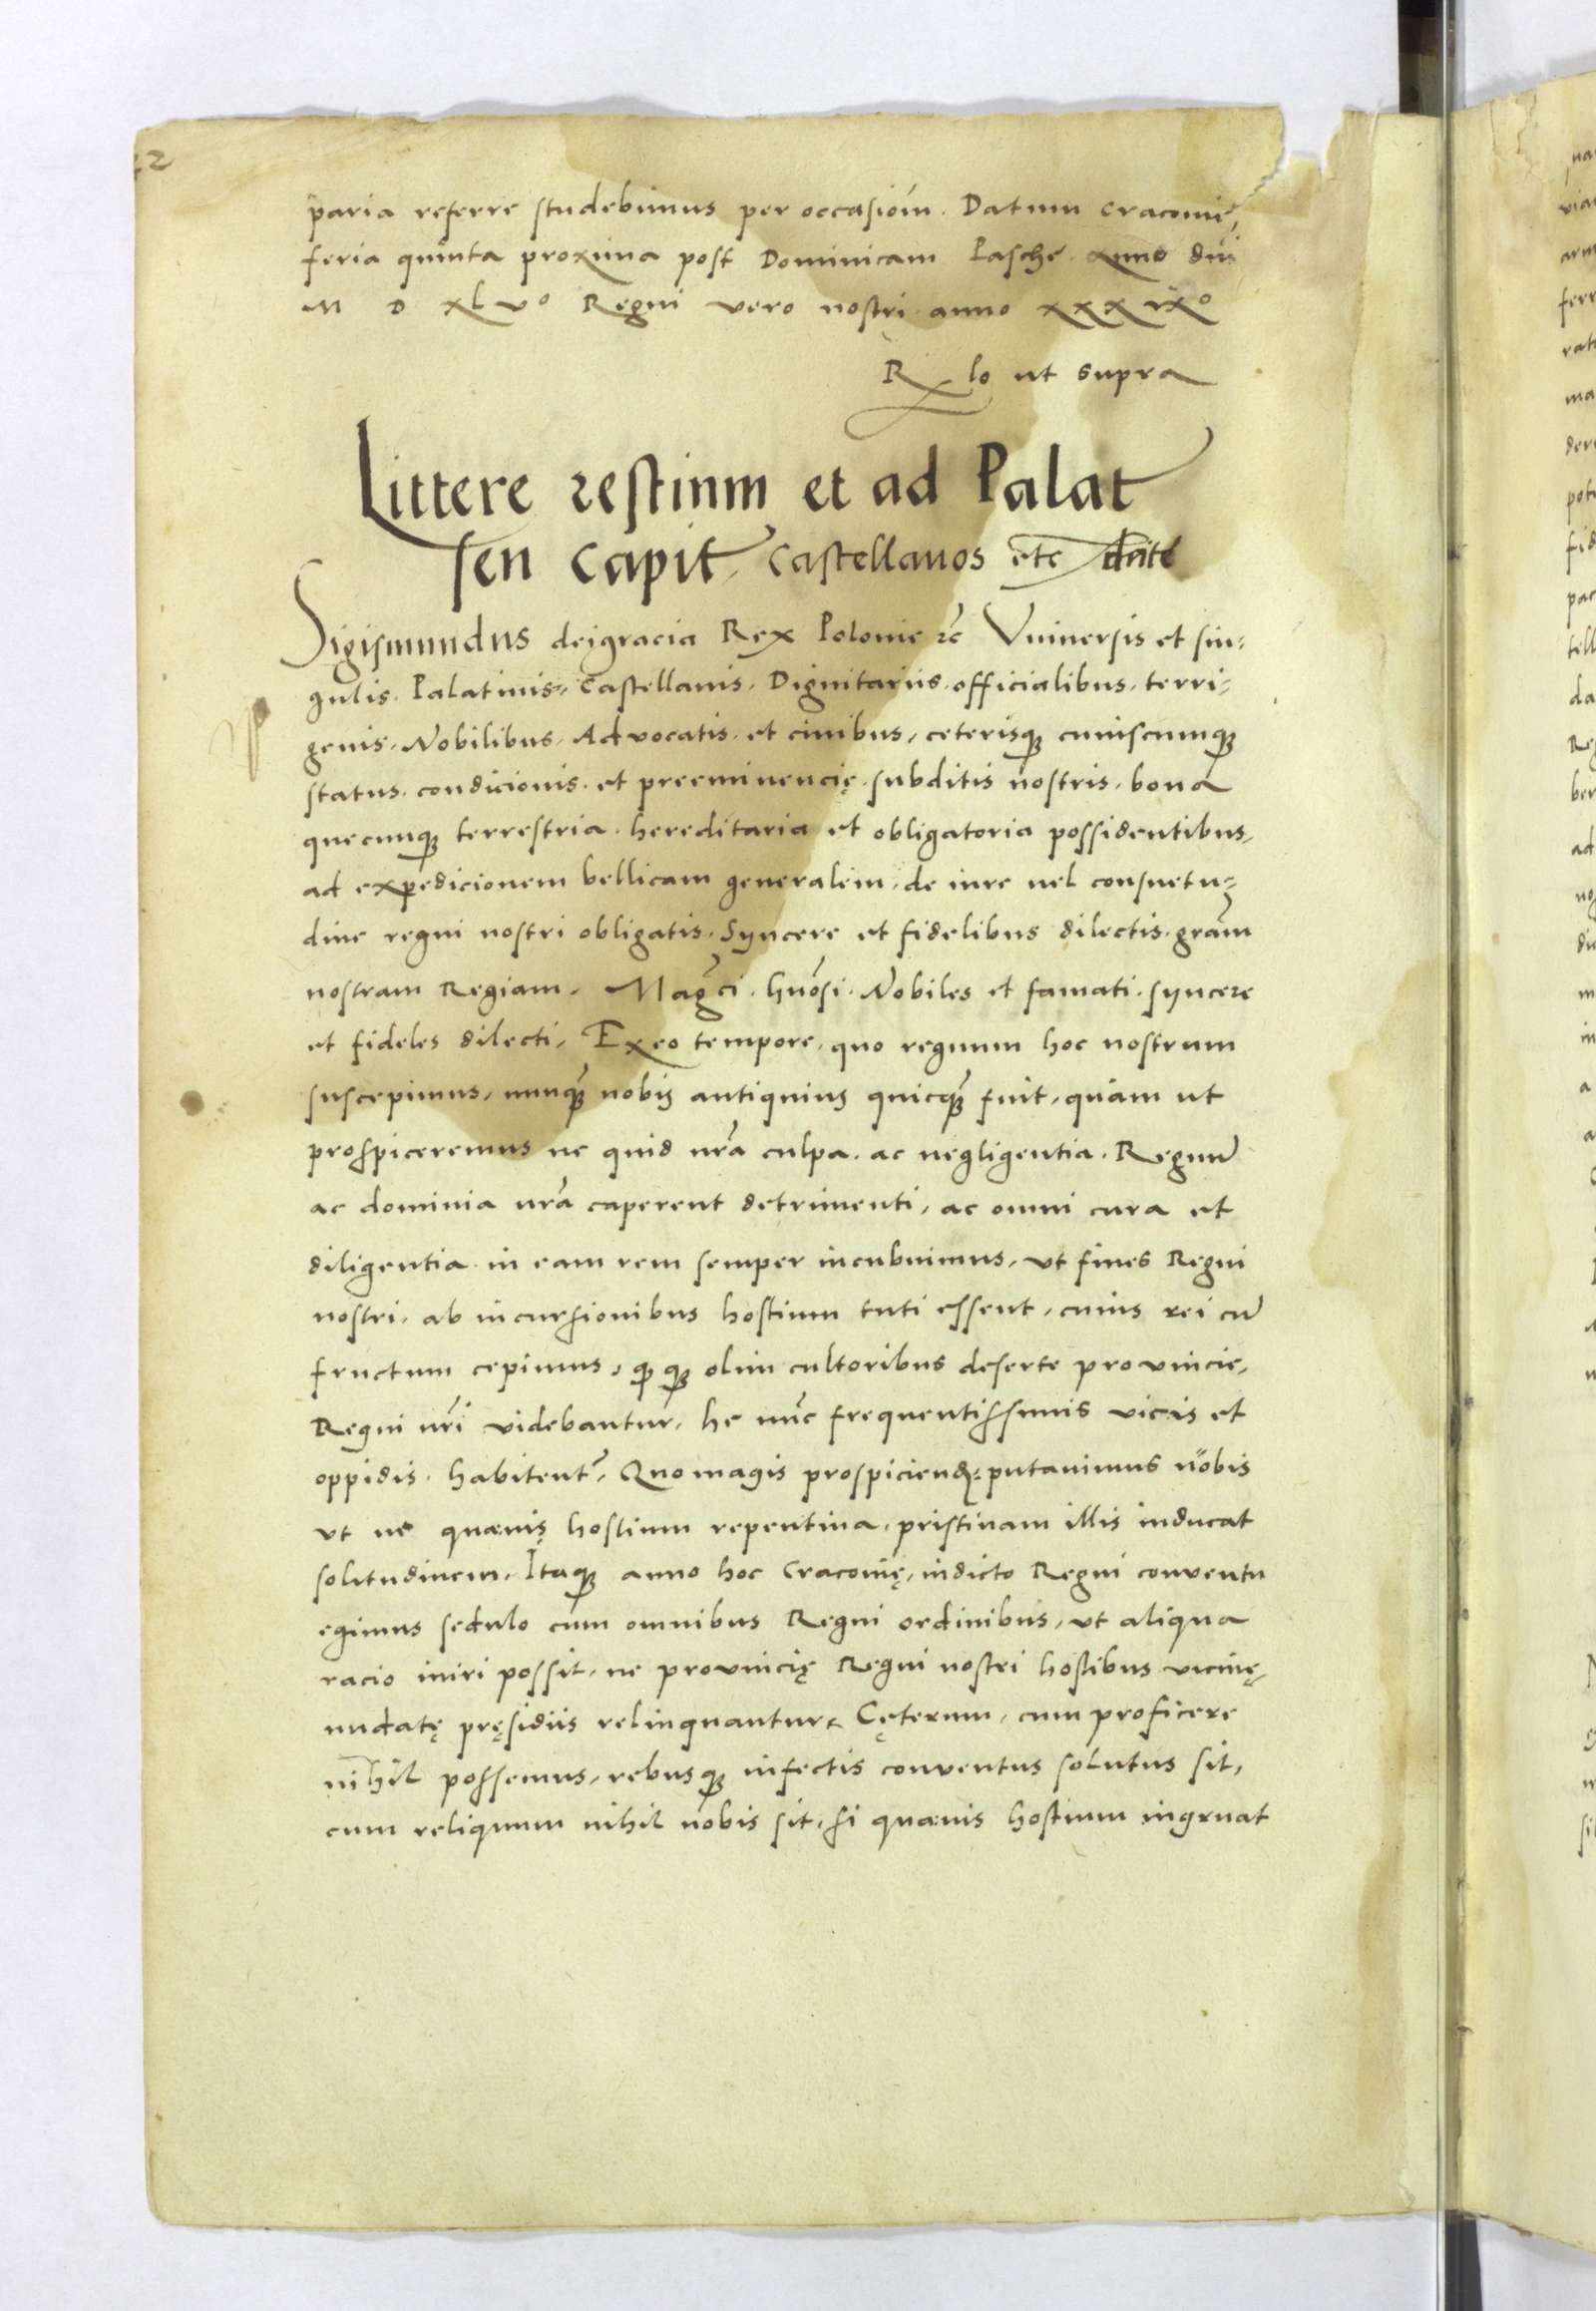 paria referre studebimus per occasiom̃. Datum Cracovie,
feria quinta proxima post Dominicam Pasche Anno dñi
M D xl v° Regni vero nostri anno xxxix°
R lo ut supra
Littere restium et ad Palat
seu Capit Castellanos etc date
Sigismundus dei gracia Rex Polonie ꝛc̃ Vniuersis et sin-
gulis. Palatinis, Castellanis. Dignitariis. officialibus. terri-
genis. Nobilibus. Advocatis. et ciuibus, ceterisqꝫ cuiuscumqꝫ
status. condicionis. et preeminencię. subditis nostris. bona
quecunqꝫ terrestria. hereditaria et obligatoria possidentibus,
ad expedicionem bellicam generalem. de iure uel consuetu-
dine regni nostri obligatis. Syncere et fidelibus dilectis. grãm
nostram Regiam. Mag̃ci. Gnõsi. Nobiles et famati. syncere
et fideles dilecti, Ex eo tempore, quo regnum hoc nostrum
suscepimus, nunqꝫ nobis antiquius quicqꝫ fuit, quàm ut
prospiceremus ne quid nrã culpa. ac negligentia. Regnũ
ac dominia nrã caperent detrimenti, ac omni cura et
diligentia in eam rem semper incubuimus, vt fines Regni
nostri, ab incursionibus hostium tuti essent, cuius rei cũ
fructum cepimus, qꝫ qꝫ olim cultoribus deserte provincie,
Regni nr̃i videbantur, he nũc frequentissimis vicis et
oppidis. habitent᷑, Quo magis prospiciend. putauimus nobis
vt ne quævis hostium repentina. pristinam illis inducat
solitudinem, Itaqꝫ anno hoc Cracovię, indicto Regni conventu
egimus sedulo cum omnibus Regni ordinibus, vt aliqua
racio iniri possit, ne provincię Regni nostri hostibus vicinę,
nudatę pręsidiis relinquantur, Cęterum, cum proficere
nihil possemus, rebusqꝫ infectis conventus solutus sit,
cum reliquum nihil nobis sit, si quævis hostium ingruat